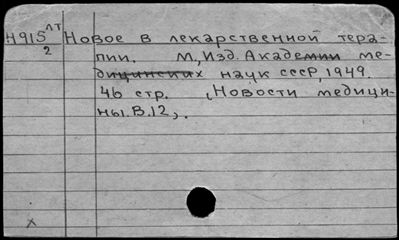 Н915 лт Новое в лекарственной тера-
2 пии. М., Изд. Академии ме-
дицинских наук СССР, 1949.
46 стр. (Новости медици-
ны. В.12).
x